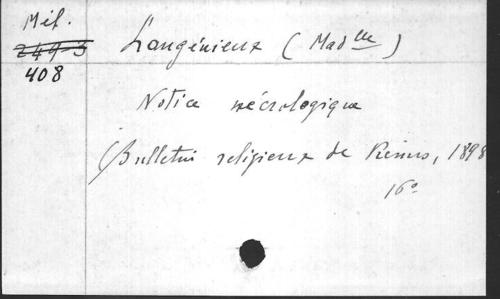 Mél.
249-3
408
Langénieux (Mad lle)
Notice nécrologique
(Bulletin religieux de Reims, 1898
16°